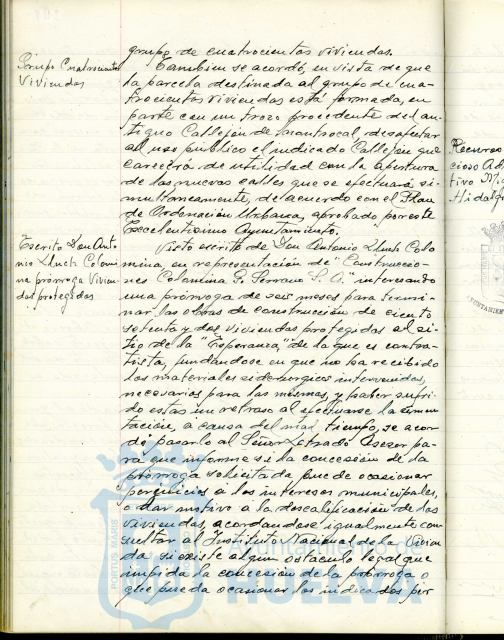 grupo de cuatrocientas viviendas.
Grupo Cuatrocientas
Viviendas
Tambien se acordó, en vista de que
la parcela destinada al grupo de cua-
trocientas viviendas está formada, en
parte con un trozo procedente del an-
tiguo Callejón de Mantrocal, desafectar
al uso público el indicado Callejón que
carecerá de utilidad con la apertura
de las nuevas calles que se efectuará si-
multaneamente, de acuerdo con el Plan
de Ordenación Urbana, aprobado por este
Excelentisimo Ayuntamiento.
Escrito Don Anto-
nio Lluch Colomi-
na prórroga Vivien-
das protegidas
Visto escrito de Don Antonio Lluch Colo
mina, en representación de "Construccio-
nes Colomina G. Serrano S. A." interesando
una prórroga de seis meses para termi-
nar las obras de construcción de ciento
setenta y dos viviendas protegidas al si-
tio de la "Esperanza," de la que es contra-
tista, fundandose en que no ha recibido
los materiales siderurgicos intervenidos,
necesarios para las mismas, y haber sufri-
do estas un retraso al efectuarse la cimen-
tación, a causa del mal tiempo, se acor-
dó pasarlo al Señor Letrado Asesor pa-
ra que informe si la concesión de la
prórroga solicitada puede ocasionar
perjuicios a los intereses municipales,
o dar motivo a la descalificación de las
viviendas, acordandose igualmente con
sultar al Instituto Nacional de la Vivien
da si existe algun obstaculo legal que
impida la concesión de la prórroga o
que pueda ocasionar los indicados per
Recurso
cioso Ad
tivo
Hidalgo
Ayuntamiento de
HUELVA